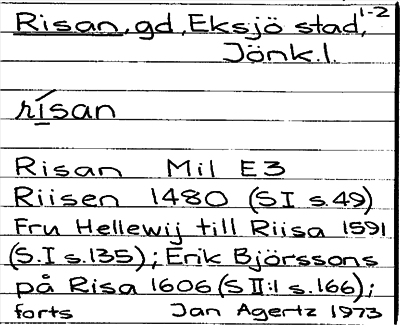 Risan, gd, Eksjö stad, 1-2
Jönk.l.
rísan
Risan Mil E3
Riisen 1480 (S I s.49)
Fru Hellewij till Riisa 1591
(S.I s.135); Erik Björssons
på Risa 1606 (S II:1 s.166);
forts Jan Agertz 1973